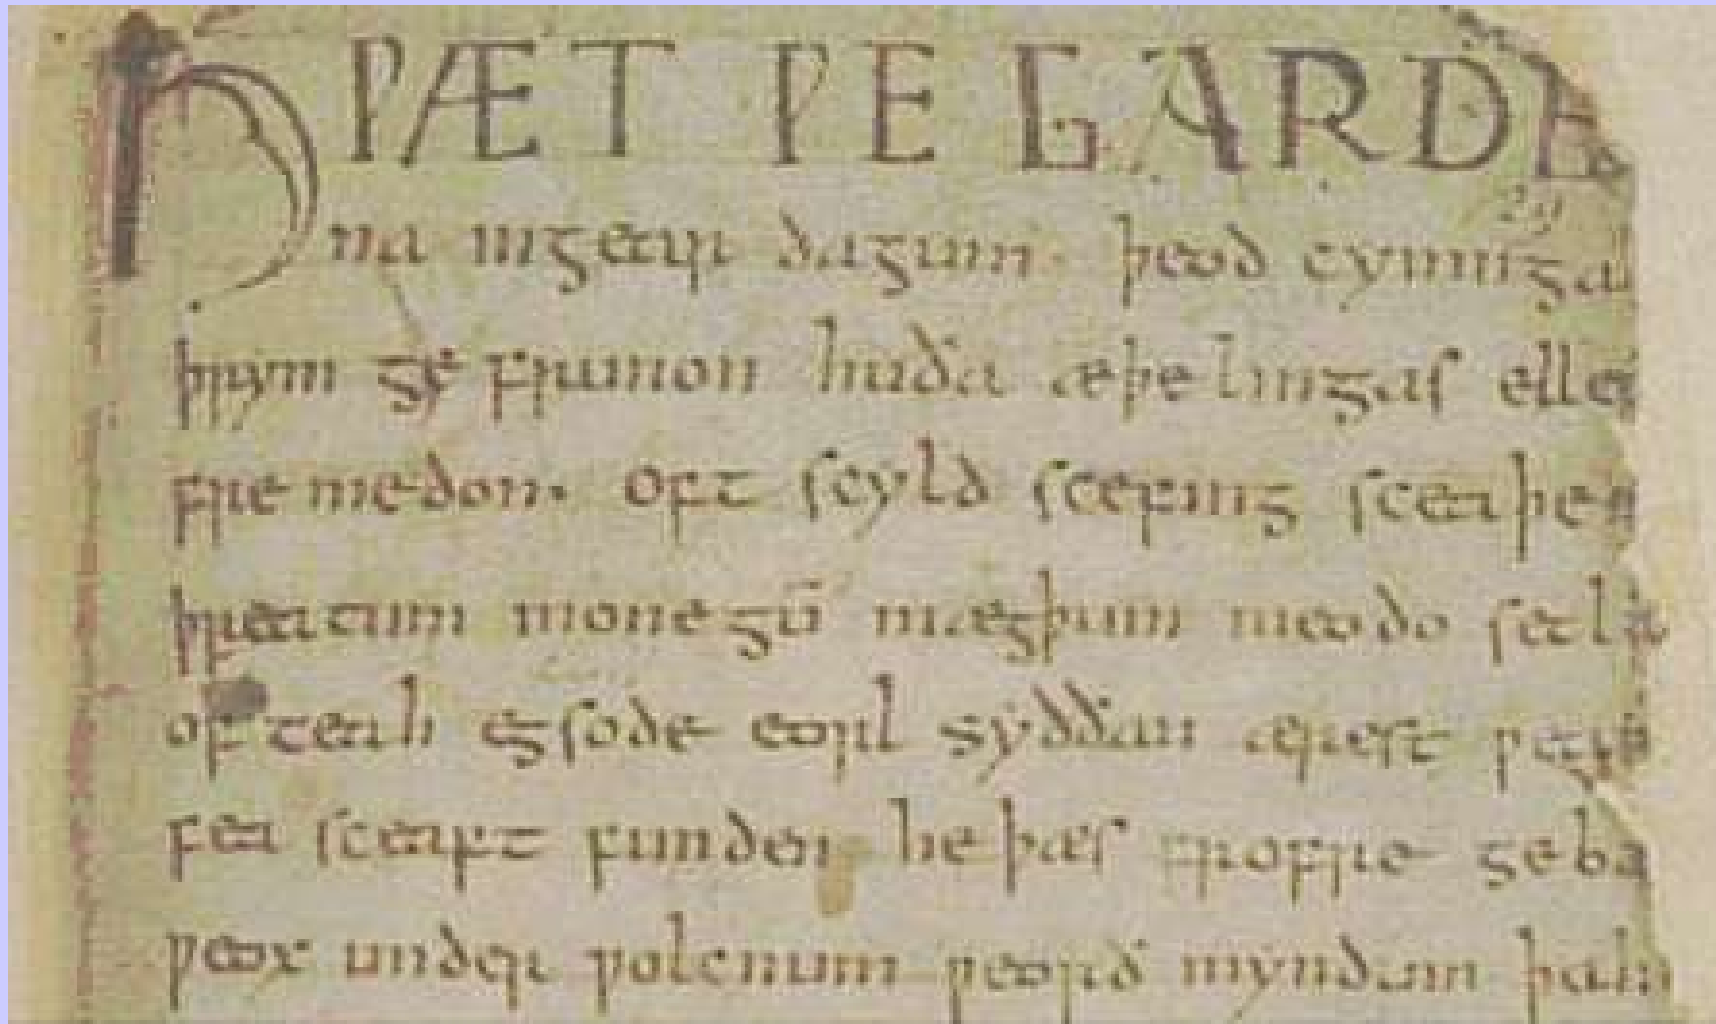 HǷÆT ǷE GARDE
na ingear dagum. þeod cyninga
þrym ge frunon huða æþelingas elle
fre medon. oft scyld scefing sceaþe
þreatum monegū mægþum meodo setla
of teah egsode eorl syððan ærest ƿear
fea sceaft funden he þæs frofre geba
ƿeox under ƿolcnum ƿeorð myndum þah